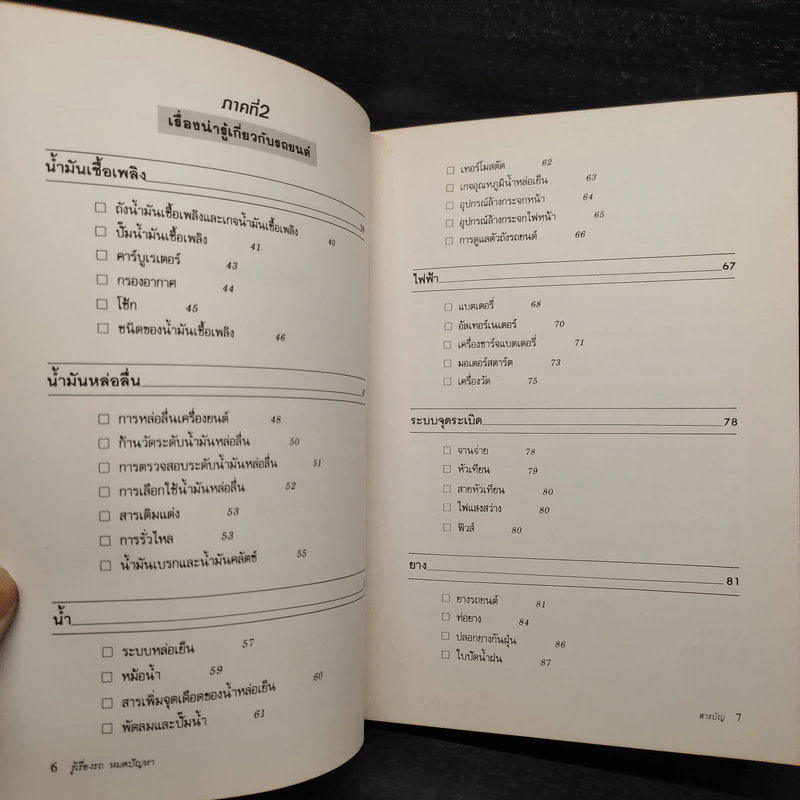 ภาคที่2
เรื่องน่ารู้เกี่ยวกับรถยนต์
น้ำมันเชื้อเพลิง
ถังน้ำมันเชื้อเพลิงและเกจน้ำมันเชื้อเพลิง 40
ปั๊มน้ำมันเชื้อเพลิง 41
คาร์บูเรเตอร์ 43
กรองอากาศ 44
โช้ก 45
ชนิดของน้ำมันเชื้อเพลิง 46
น้ำมันหล่อลื่น
การหล่อลื่นเครื่องยนต์ 48
ก้านวัดระดับน้ำมันหล่อลื่น 50
การตรวจสอบระดับน้ำมันหล่อลื่น 51
การเลือกใช้น้ำมันหล่อลื่น 52
สารเติมแต่ง 53
การรั่วไหล 53
น้ำมันเบรกและน้ำมันคลัตช์ 55
น้ำ
ระบบหล่อเย็น 57
หม้อน้ำ 59
สารเพิ่มจุดเดือดของน้ำหล่อเย็น 60
พัดลมและปั๊มน้ำ 61
6 รู้เรื่องรถ หมดปัญหา
เทอร์โมสตัด 62
เกจอุณหภูมิน้ำหล่อเย็น 63
อุปกรณ์ล้างกระจกหน้า 64
อุปกรณ์ล้างกระจกไฟหน้า 65
การดูแลตัวถังรถยนต์ 66
ไฟฟ้า 67
แบตเตอรี่ 68
อัลเทอร์เนเตอร์ 70
เครื่องชาร์จแบตเตอรี่ 71
มอเตอร์สตาร์ต 73
เครื่องวัด 75
ระบบจุดระเบิด 78
จานจ่าย 78
หัวเทียน 79
สายหัวเทียน 80
ไฟแสงสว่าง 80
ฟิวส์ 80
ยาง 81
ยางรถยนต์ 81
ท่อยาง 84
ปลอกยางกันฝุ่น 86
ใบปัดน้ำฝน 87
สารบัญ 7